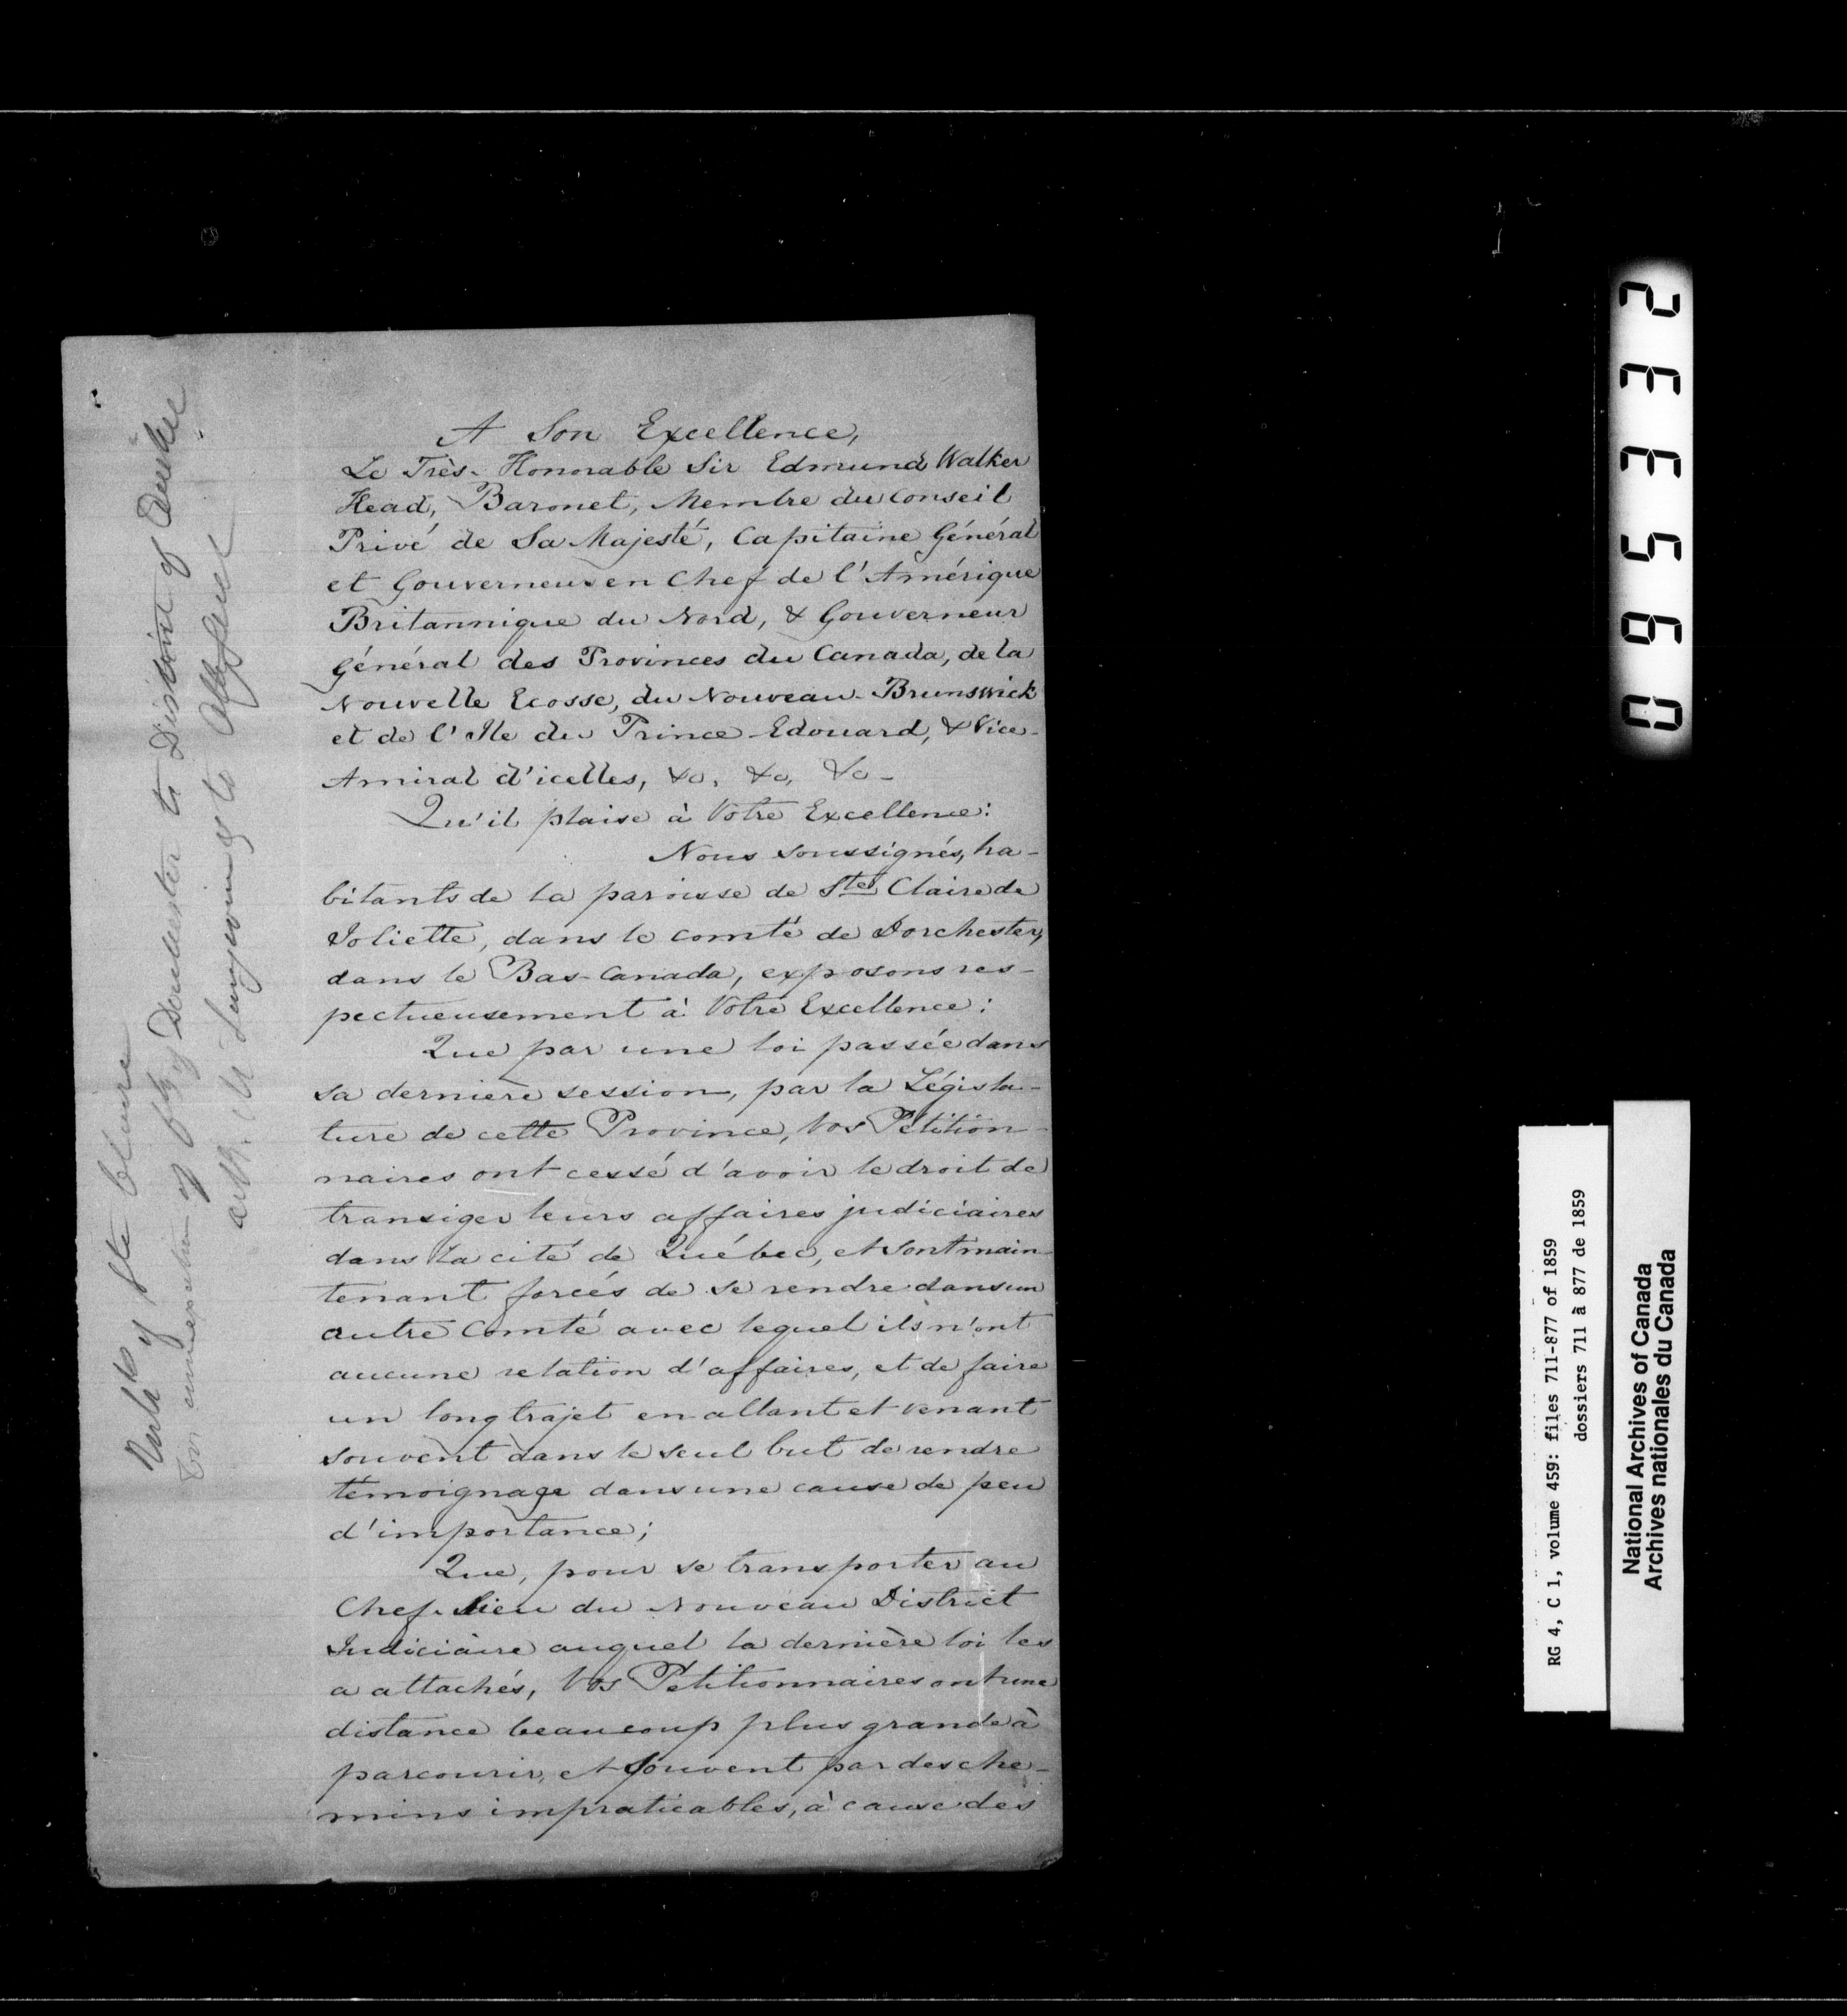 A Son Excellence,
Le Très-Honorable Sir Edmund Walker
Head, Baronet, Membre du Conseil
Privé de Sa Majesté, Capitaine Général
et Gouverneur en Chef de l'Amérique
Britannique du Nord, & Gouverneur
Général des Provinces du Canada, de la
Nouvelle Ecosse, du Nouveau-Brunswick
et de l'Ile du Prince-Edouard, & Vice-
Amiral d'icelles, &c, &c, &c-
Qu'il plaise à Votre Excellence:
Nous soussignés, ha-
bitants de la paroisse de Ste Claire de
Joliette, dans le comté de Dorchester,
dans le Bas-Canada, exposons res-
pectueusement à Votre Excellence:
Que par une loi passée dans
sa dernière session, par la Législa-
ture de cette Province, Vos Pétition-
naires ont cessé d'avoir le droit de
transiger leurs affaires judiciaires
dans la cité de Québec, et sont main-
tenant forcés de se rendre dans un
autre Comté avec lequel ils n'ont
aucune relation d'affaires, et de faire
un long trajet en allant et venant
souvent dans le seul but de rendre
témoignage dans une cause de peu
d'importance;
Que, pour se transporter au
Chef-lieu du Nouveau District
Judiciaire auquel la dernière loi les
a attachés, Vos Pétitionnaires ont une
distance beaucoup plus grande à
parcourir, et souvent par des che-
mins impraticables, à cause des
of Ste Claire
for annexation of Cty Dorchester to District of Quebec
Mr Langevin to
RG 4, C 1, volume 459: files 711-877 of 1859
dossiers 711 à 877 de 1859
National Archives of Canada
Archives nationales du Canada
235390